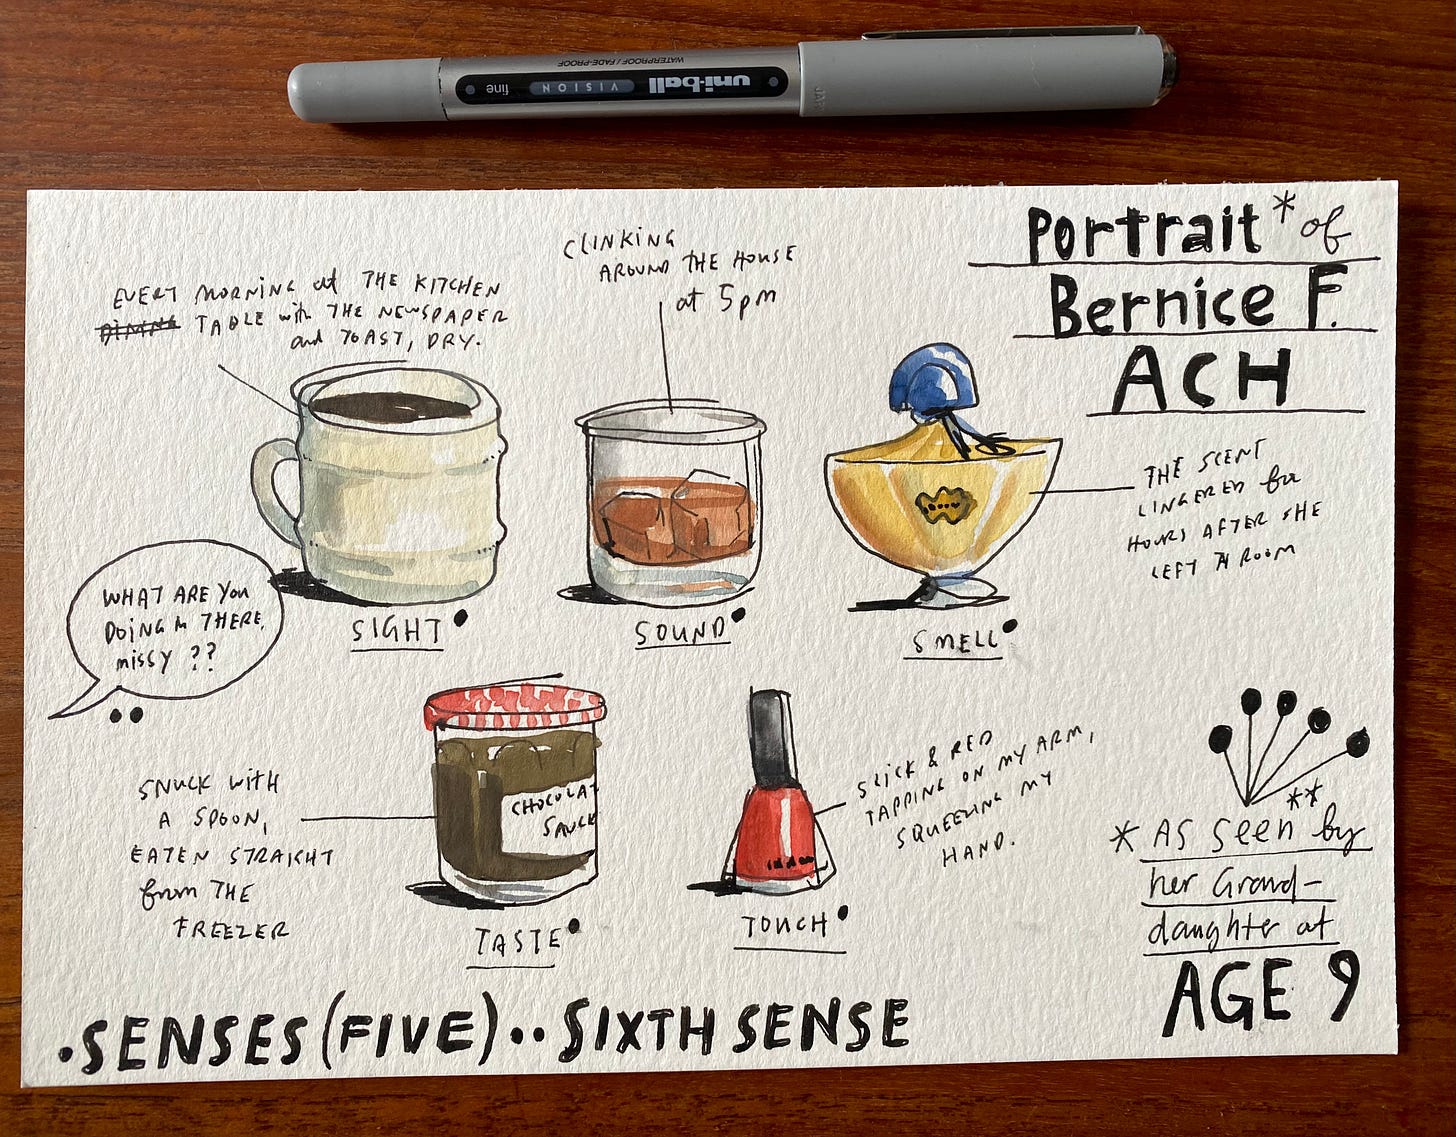 uni-ball VISION fine
WATERPROOF / FADE-PROOF
Portrait* of
Bernice F.
ACH
EVERY MORNING at THE KITCHEN
DINING TABLE with THE NEWSPAPER
and TOAST, DRY.
CLINKING
AROUND THE HOUSE
at 5pm
THE SCENT
LINGERED for
HOURS AFTER SHE
LEFT A ROOM
SIGHT•
SOUND•
SMELL•
WHAT ARE YOU
DOING IN THERE,
MISSY ??
••
SNUCK WITH
A SPOON,
EATEN STRAIGHT
from THE
FREEZER
CHOCOLAT
SAUCE
TASTE•
SLICK & RED
TAPPING ON MY ARM,
SQUEEZING MY
HAND.
TOUCH•
* AS Seen** by
her Grand-
daughter at
AGE 9
•SENSES (FIVE) •• SIXTH SENSE